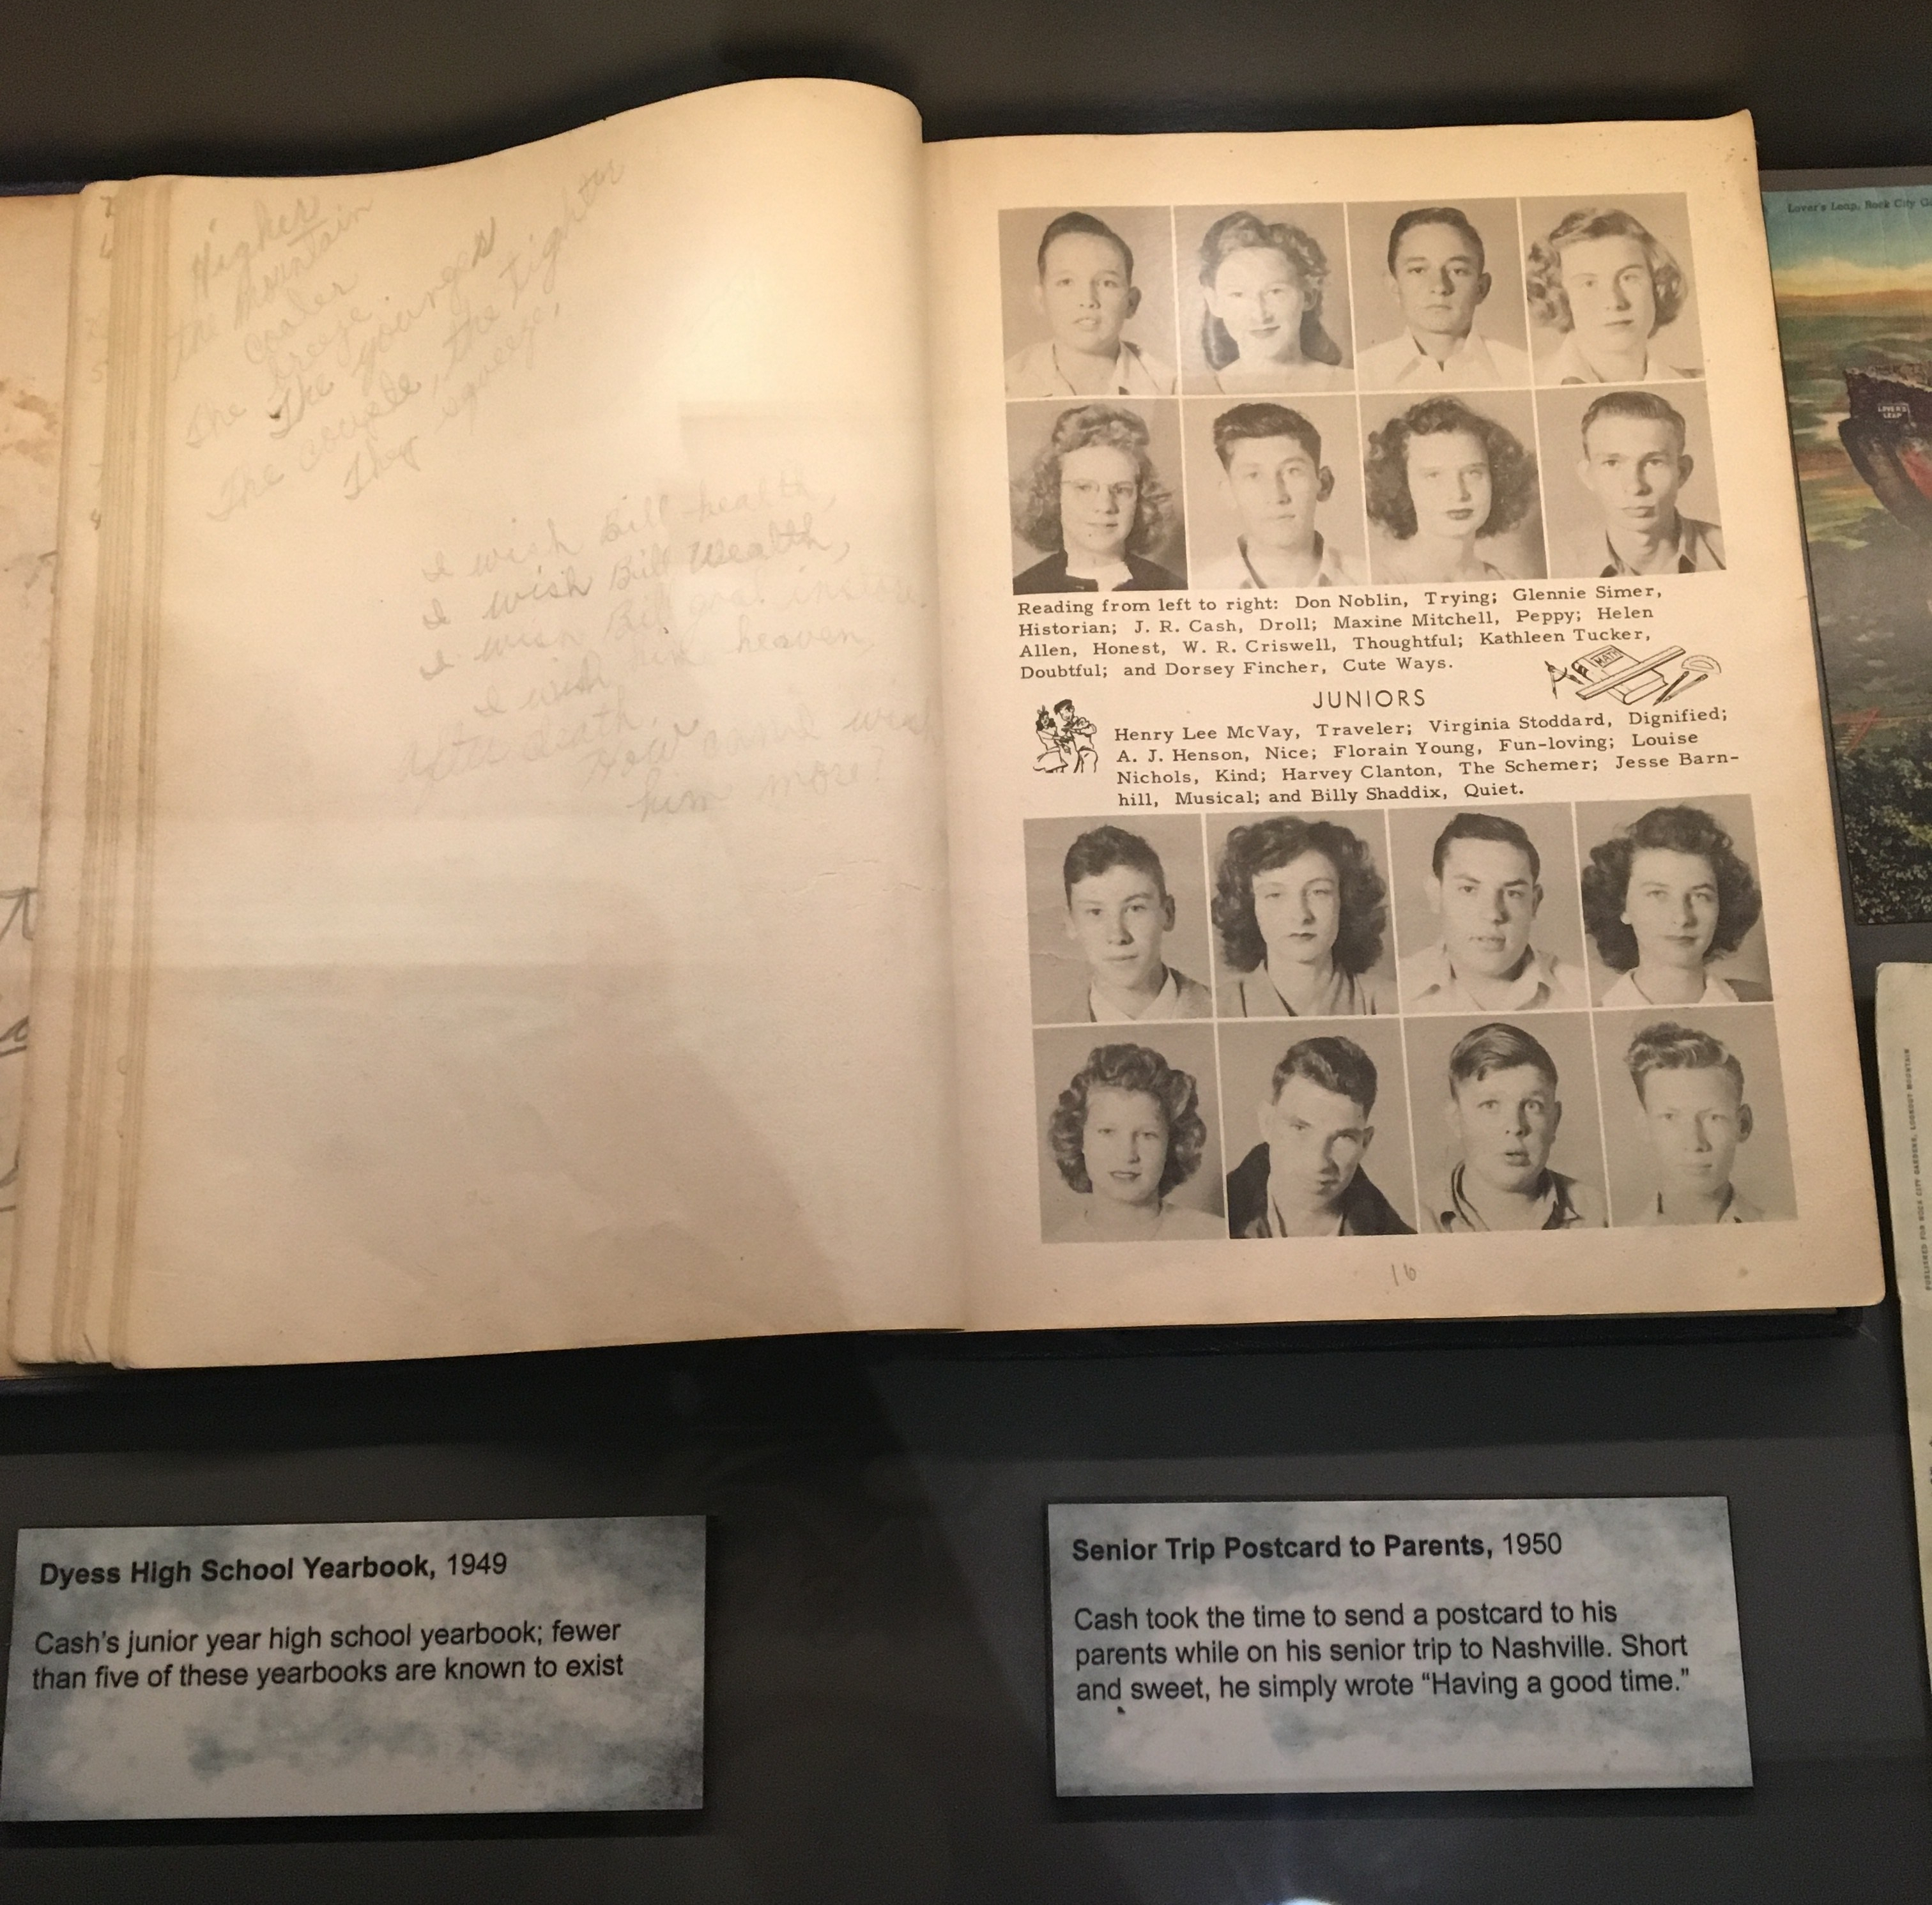 Higher
the mountain
The cooler
breeze
The younger
The couple, the tighter
They squeeze,
I wish Bill health,
I wish Bill Wealth,
I wish Bill
I wish him heaven,
After death,
How can I wish
him more!
Reading from left to right: Don Noblin, Trying; Glennie Simer,
Historian; J. R. Cash, Droll; Maxine Mitchell, Peppy; Helen
Allen, Honest, W. R. Criswell, Thoughtful; Kathleen Tucker,
Doubtful; and Dorsey Fincher, Cute Ways.
MATH
JUNIORS
Henry Lee McVay, Traveler; Virginia Stoddard, Dignified;
A. J. Henson, Nice; Florain Young, Fun-loving; Louise
Nichols, Kind; Harvey Clanton, The Schemer; Jesse Barn-
hill, Musical; and Billy Shaddix, Quiet.
16
Lover's Leap, Rock City
LOVER'S
LEAP
PUBLISHED FOR ROCK CITY GARDENS, LOOKOUT MOUNTAIN
Dyess High School Yearbook, 1949
Cash's junior year high school yearbook; fewer
than five of these yearbooks are known to exist
Senior Trip Postcard to Parents, 1950
Cash took the time to send a postcard to his
parents while on his senior trip to Nashville. Short
and sweet, he simply wrote “Having a good time.”